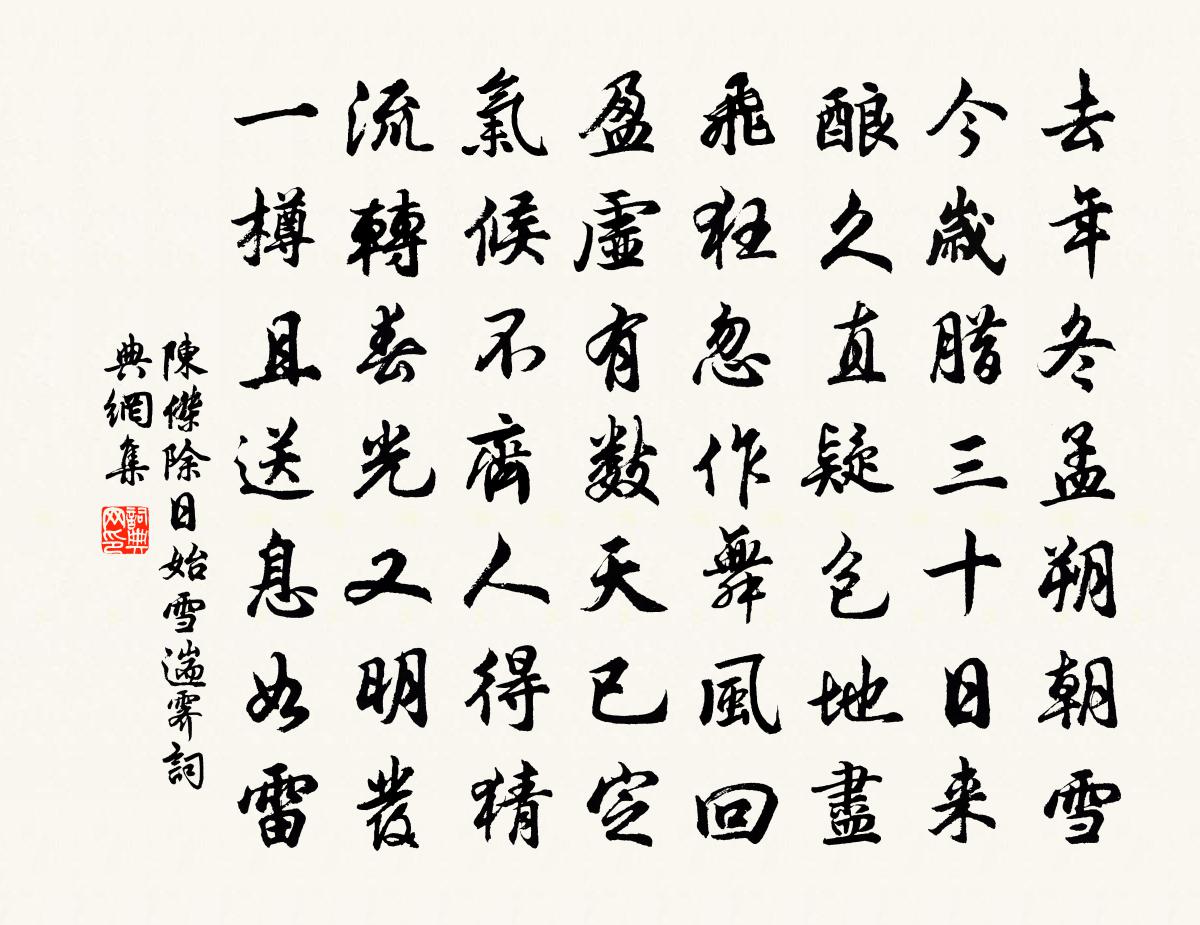 去年冬孟朔朝雪
今歲腊三十日来
酿久直疑包地盡
飛狂忽作舞風回
盈虛有數天已定
氣候不齊人得猜
流轉春光又明發
一樽且送息如雷
陳傑除日始雪遄霽詞
典網集
詞典
网印